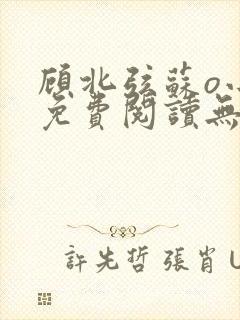 顾北弦蘇o.
免費閱讀無
許先哲 張肖U